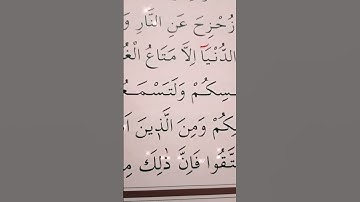 زُحْزِحَ عَنِ النَّارِ وَ
الدُّنْيَآ اِلَّا مَتَاعُ الْغُ
ـسِكُمْ وَلَتَسْمَعُ
ـكُمْ وَمِنَ الَّذِينَ اَ
ـتَّقُوا فَاِنَّ ذٰلِكَ مِ